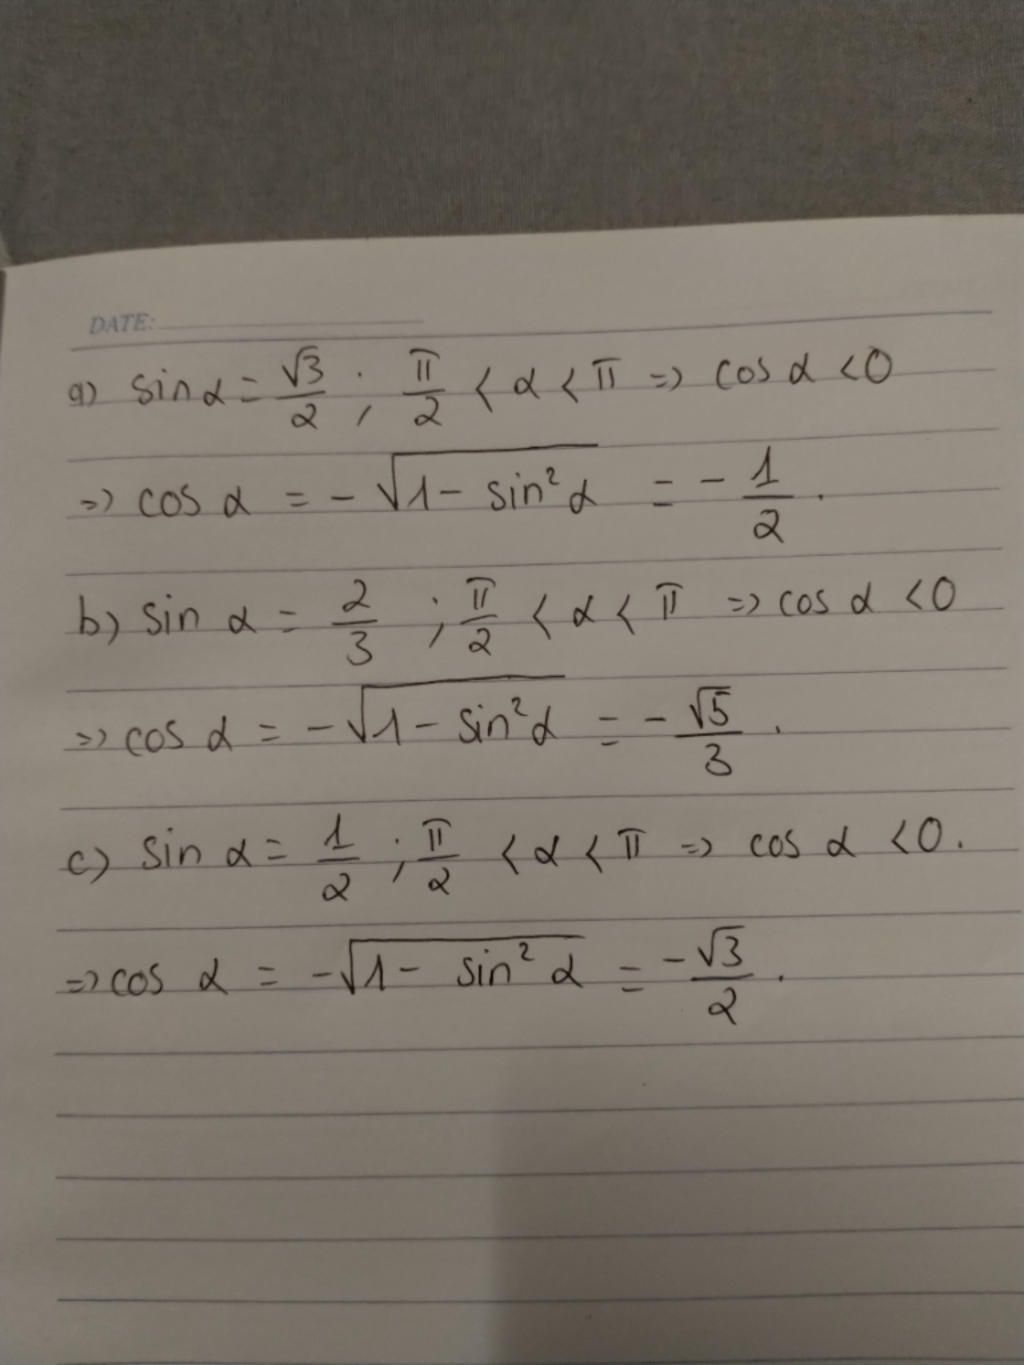 DATE:
a) sin α = √3/2 ; π/2 < α < π => cos α < 0
=> cos α = -√(1 - sin²α) = - 1/2 .
b) sin α = 2/3 ; π/2 < α < π => cos α < 0
=> cos α = -√(1 - sin²α) = - √5/3 .
c) sin α = 1/2 ; π/2 < α < π => cos α < 0.
=> cos α = -√(1 - sin²α) = -√3/2 .